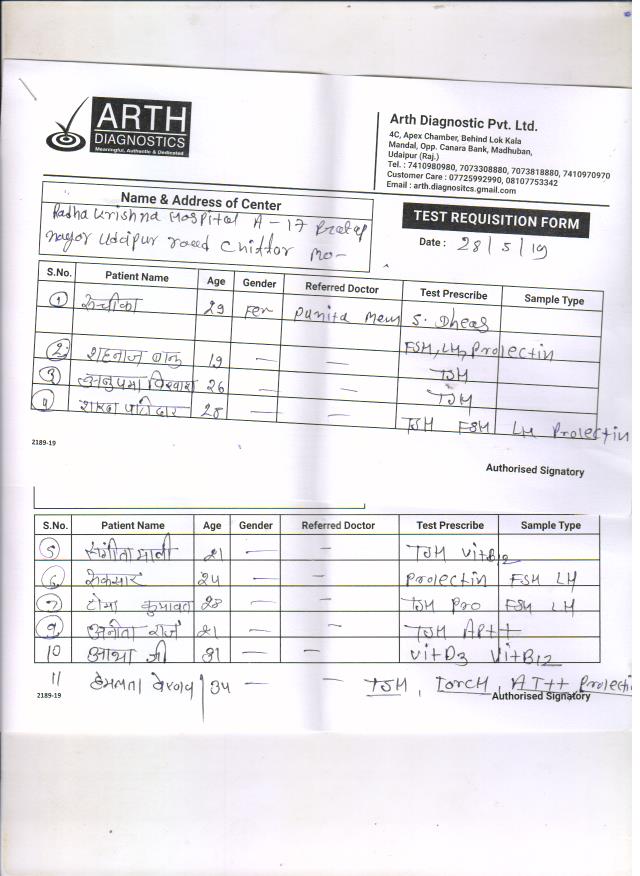 ARTH
DIAGNOSTICS
Meaningful, Authentic & Dedicated
Arth Diagnostic Pvt. Ltd.
4C, Apex Chamber, Behind Lok Kala
Mandal, Opp. Canara Bank, Madhuban,
Udaipur (Raj.)
Tel. : 7410980980, 7073308880, 7073818880, 7410970970
Customer Care : 07725992990, 08107753342
Email : arth.diagnositcs.gmail.com
Name & Address of Center
Radha Krishna Hospital A-17 Pratap
nagar Udaipur road Chittor mo-
TEST REQUISITION FORM
Date : 28/5/19
S.No. Patient Name Age Gender Referred Doctor Test Prescribe Sample Type
1 29 Fer Punita S. Dheas
FSH, LH, Prolectin
2 शहनाज बानु 19 — — TSH
3 अनुपमा विश्वास 26 — — TSH
4 28 — — TSH FSH LH Prolectin
2189-19
Authorised Signatory
S.No. Patient Name Age Gender Referred Doctor Test Prescribe Sample Type
5 संगीता माली 21 — — TSH Vit B12
6 केसर 24 — — Prolectin FSH LH
7 टीना कुमावत 28 — — TSH Pro FSH LH
9 अनीता 21 — — TSH
10 आशा जी 31 — — Vit D3 Vit B12
11 हेमलता वैष्णव 34 — — TSH, TorcH, AT++ Prolectin
2189-19
Authorised Signatory